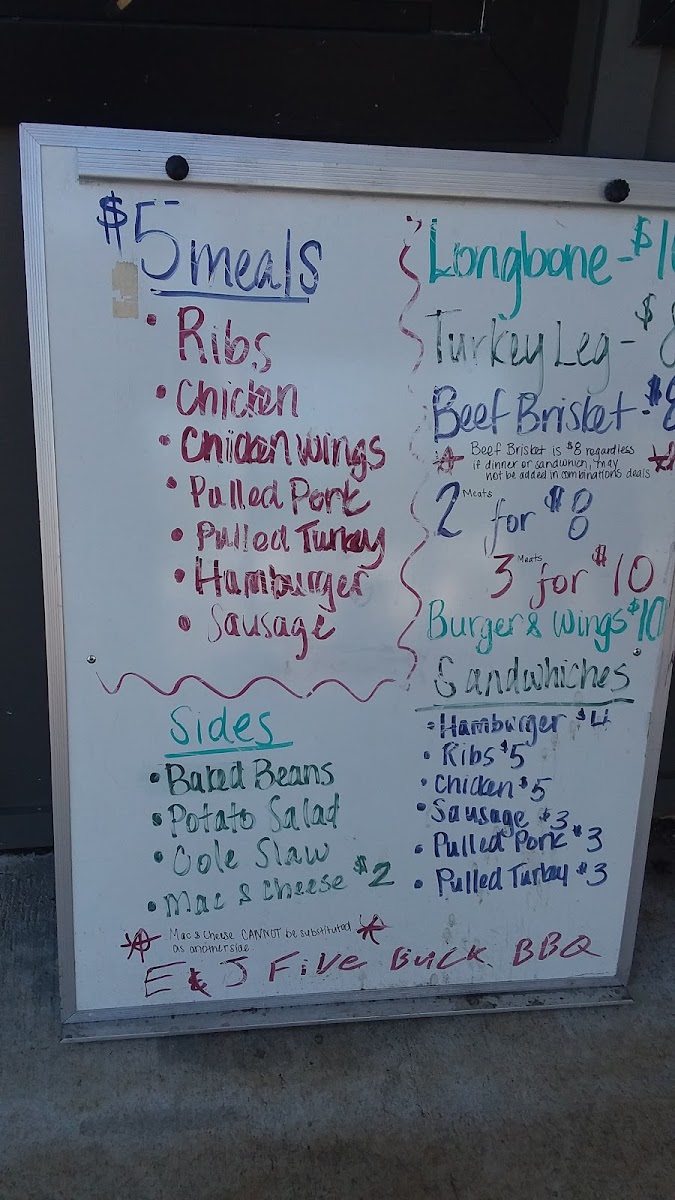 $5 meals
• Ribs
• Chicken
• Chicken wings
• Pulled Pork
• Pulled Turkey
• Hamburger
• Sausage
Sides
• Baked Beans
• Potato Salad
• Cole Slaw
• Mac & Cheese $2
Mac & Cheese CANNOT be substituted
as another side.
Longbone - $1
Turkey Leg - $8
Beef Brisket - $8
Beef Brisket is $8 regardless
if dinner or sandwhich, may
not be added in combinations deals
2 Meats for $8
3 Meats for $10
Burger & Wings $10
Sandwhiches
• Hamburger $4
• Ribs $5
• Chicken $5
• Sausage $3
• Pulled Pork $3
• Pulled Turkey $3
E & J Five Buck BBQ